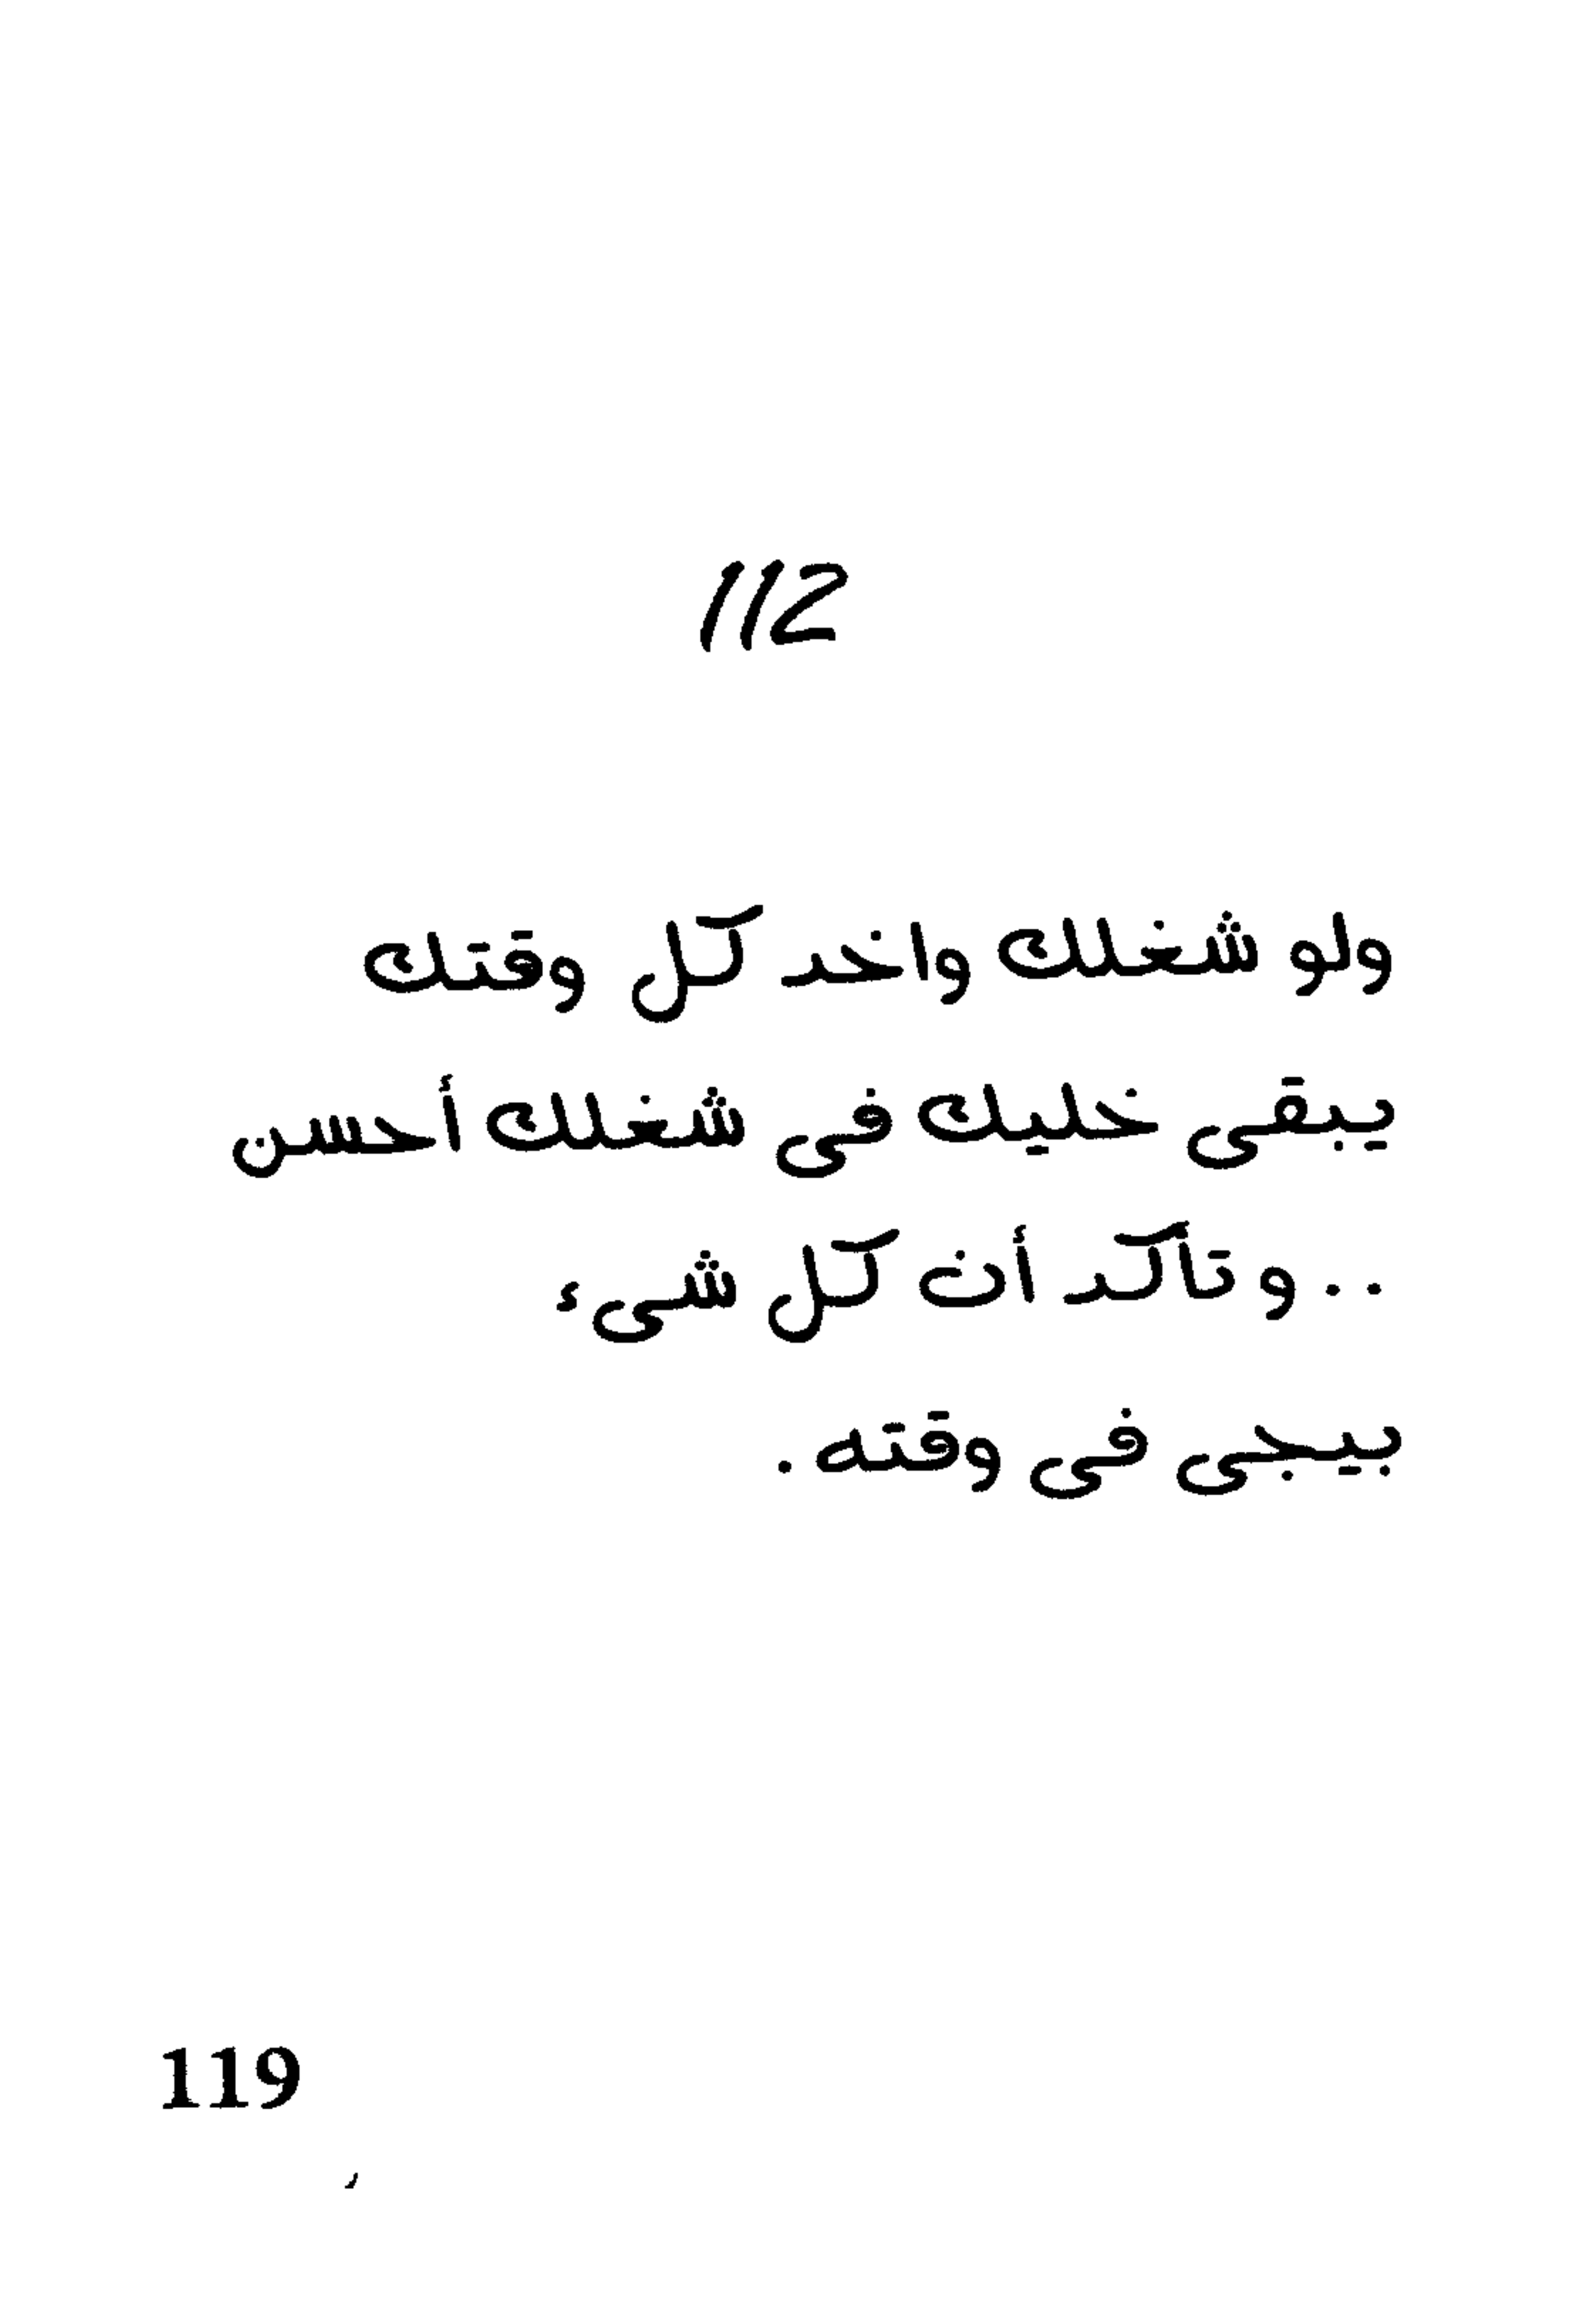 112
ولو شغلك واخد كل وقتك
يبقى خليك فى شغلك أحسن
.. وتأكد أن كل شىء
بيجى فى وقته .
119